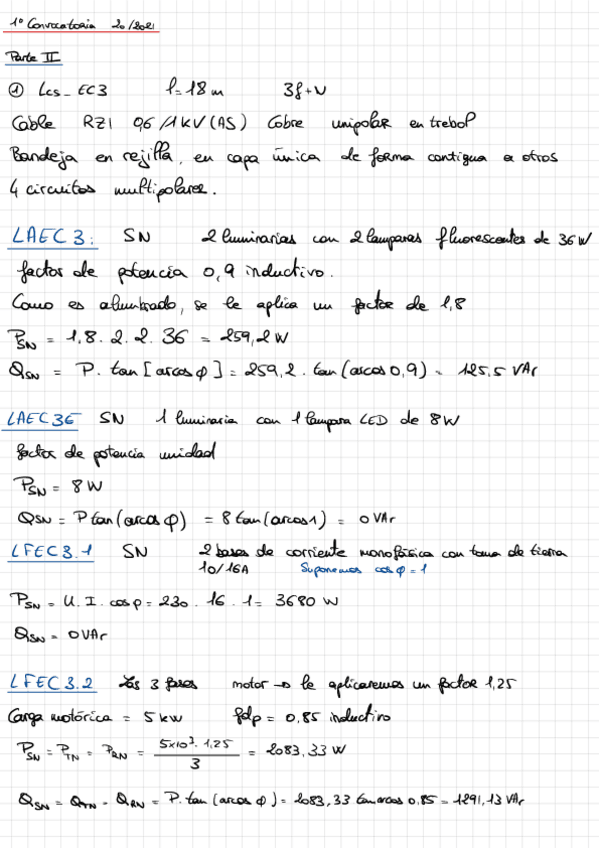 1º Convocatoria 20/2021
Parte II
① Lcs_EC3 l=18m 3f+N
Cable RZ1 0,6/1KV (AS) Cobre unipolar en trebol
Bandeja en rejilla, en capa única de forma contigua a otros
4 circuitos multipolares.
LAEC3: SN 2 luminarias con 2 lamparas fluorescentes de 36W
factor de potencia 0,9 inductivo.
Como es alumbrado, se le aplica un factor de 1,8
PSN = 1,8 . 2 . 2 . 36 = 259,2 W
QSN = P . tan [arcos φ] = 259,2 . tan (arcos 0,9) = 125,5 VAr
LAEC3E SN 1 luminaria con 1 lampara LED de 8W
factor de potencia unidad
PSN = 8 W
QSN = P tan (arcos φ) = 8 tan (arcos 1) = 0 VAr
LFEC3.1 SN 2 bases de corriente monofásica con toma de tierra
10/16A Suponemos cos φ = 1
PSN = U . I . cos φ = 230 . 16 . 1 = 3680 W
QSN = 0 VAr
LFEC3.2 Las 3 fases motor → le aplicaremos un factor 1,25
Carga motórica = 5 kW fdp = 0,85 inductivo
PSN = PTN = PRN = 5x10³ . 1,25 / 3 = 2083,33 W
QSN = QTN = QRN = P. tan (arcos φ) = 2083,33 tan arcos 0,85 = 1291,13 VAr